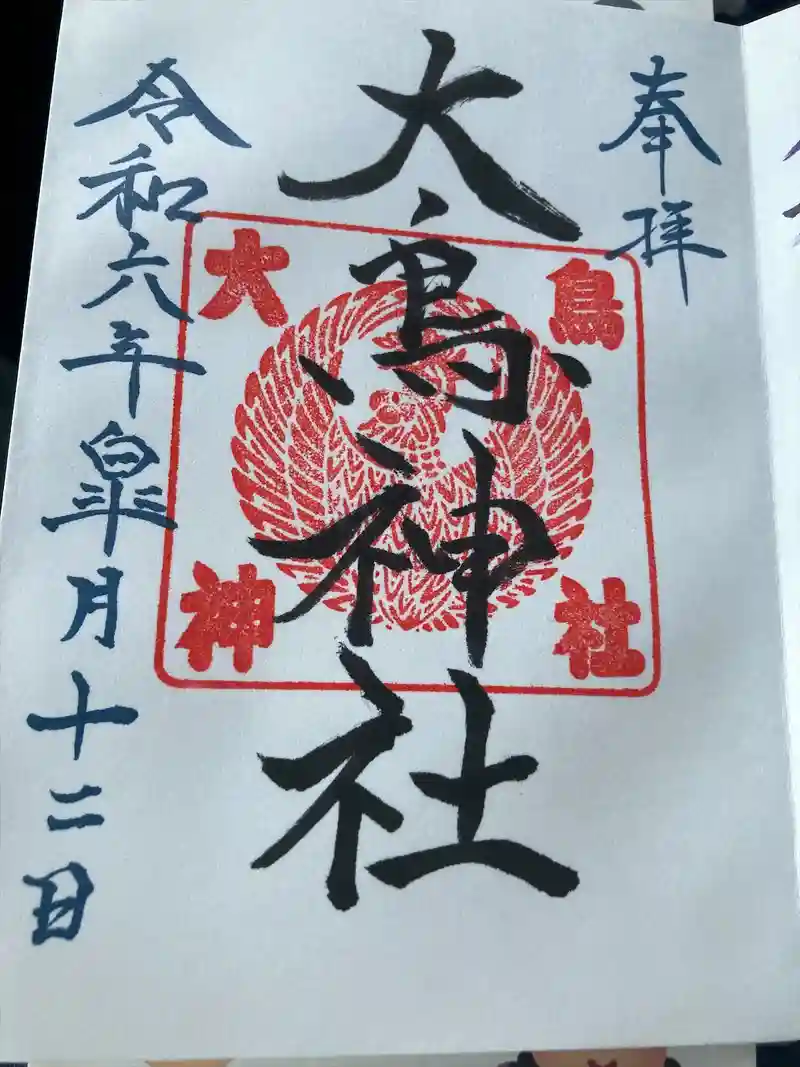 奉拝
大鳥神社
大鳥神社
令和六年皐月十二日